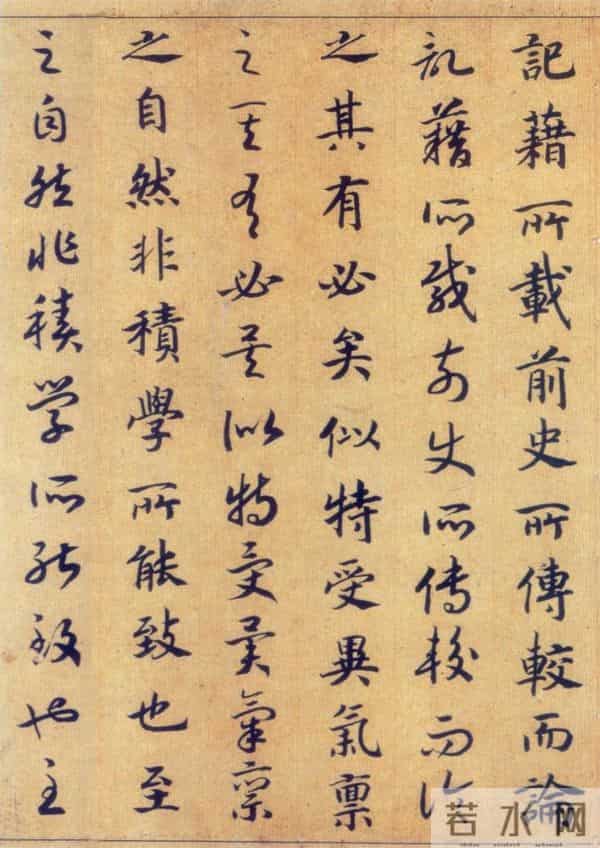 記藉所載前史所傳較而論
記藉所載前史所傳較而論
之其有必矣似特受異氣禀
之其有必矣似特受異氣禀
之自然非積學所能致也至
之自然非積學所能致也至
若水网